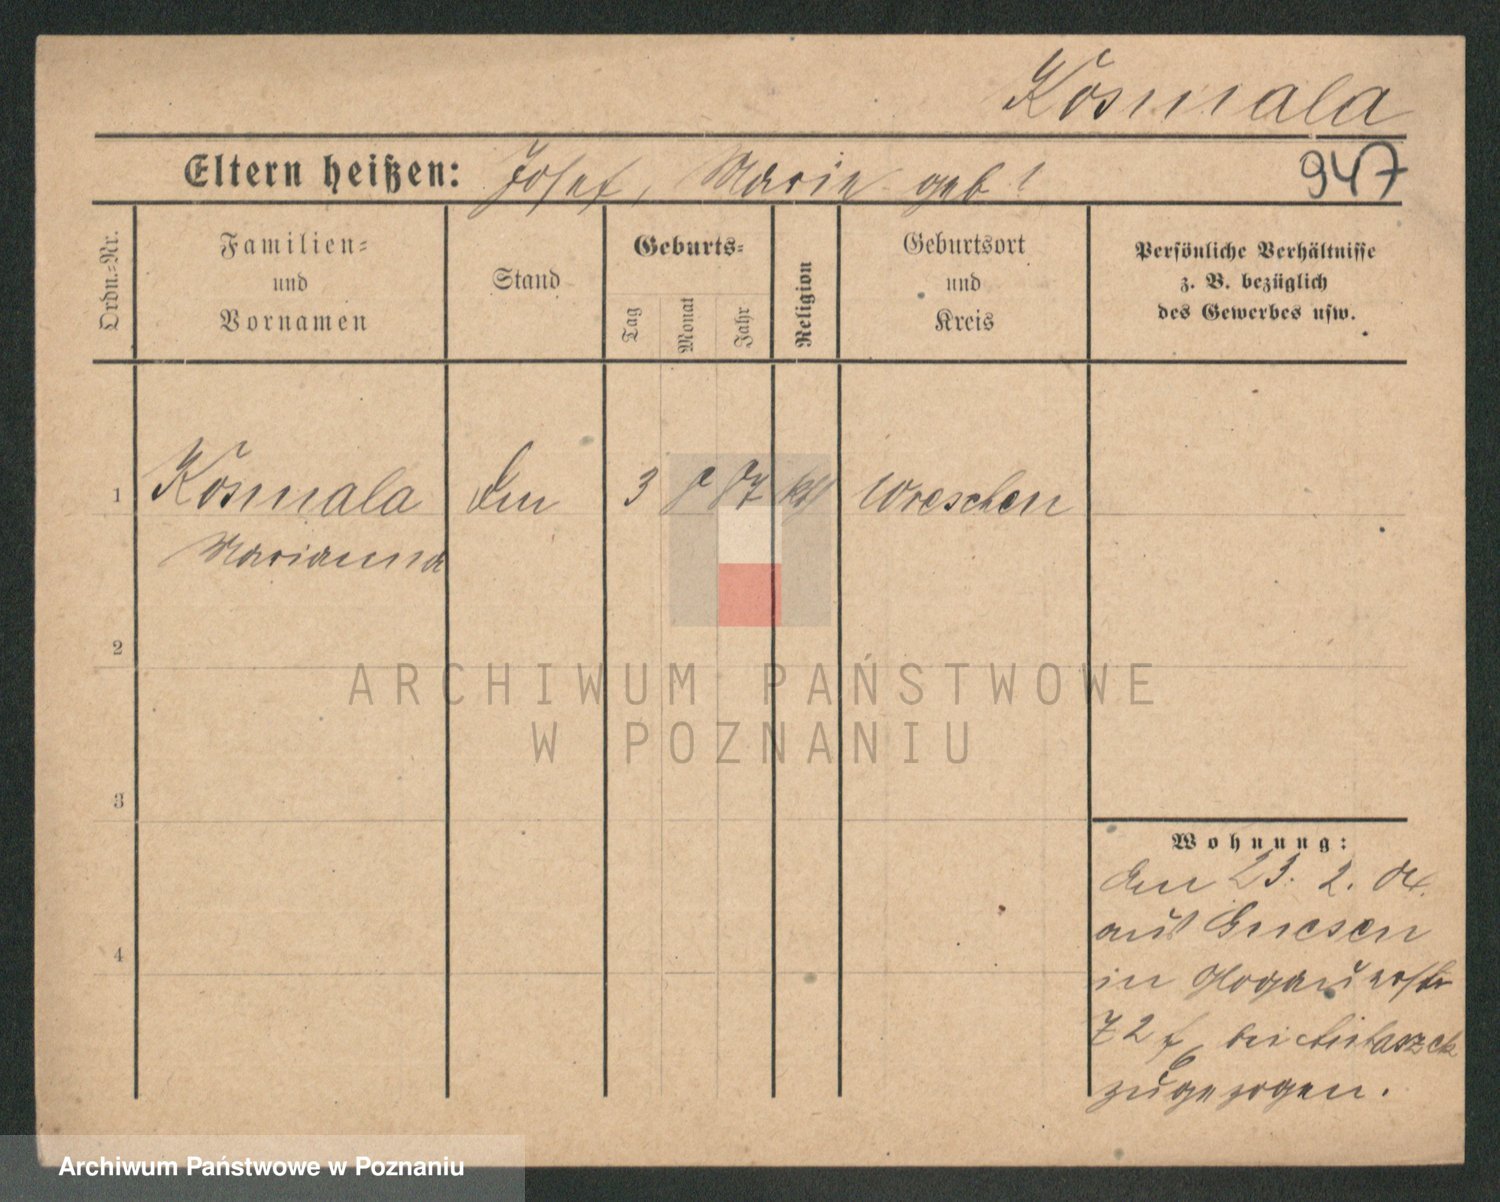 Kosmala
Eltern heißen: Josef, Marie geb!
947
Ordn.-Nr.
Familien-
und
Vornamen
Stand
Geburts-
Tag
Monat
Jahr
Religion
Geburtsort
und
Kreis
Persönliche Verhältnisse
z. B. bezüglich
des Gewerbes usw.
1 Kosmala 3 87 kth Wreschen
Marianna
2
3
4
Wohnung:
den 23. 2. 04.
aus Gnesen
in Glogauerstr
72 bei
zugezogen.
ARCHIWUM PAŃSTWOWE
W POZNANIU
Archiwum Państwowe w Poznaniu